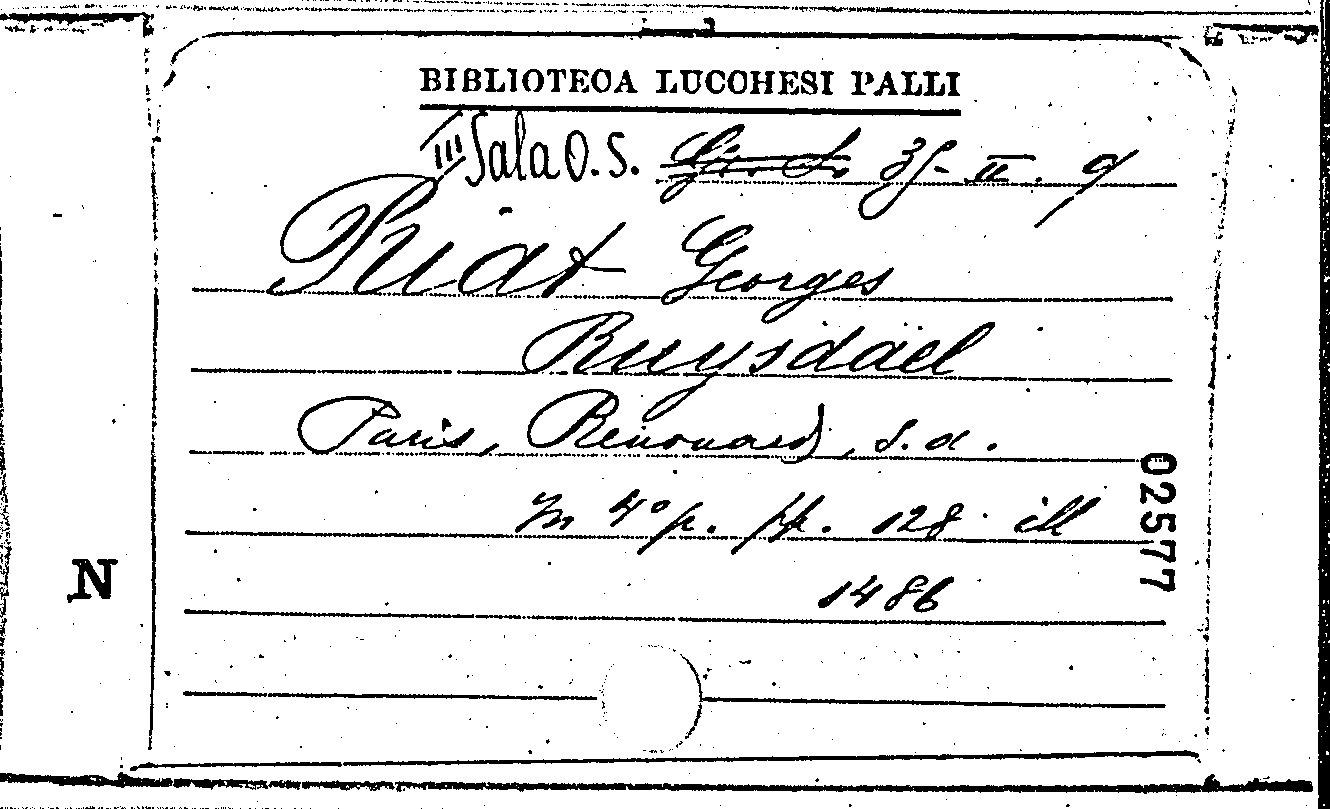 BIBLIOTECA LUCCHESI PALLI
III Sala O. S. 35 - II. 9
Riat Georges
Ruysdaël
Paris, Renouard, s. d.
In 4° p. pp. 128 ill
1486
02577
N